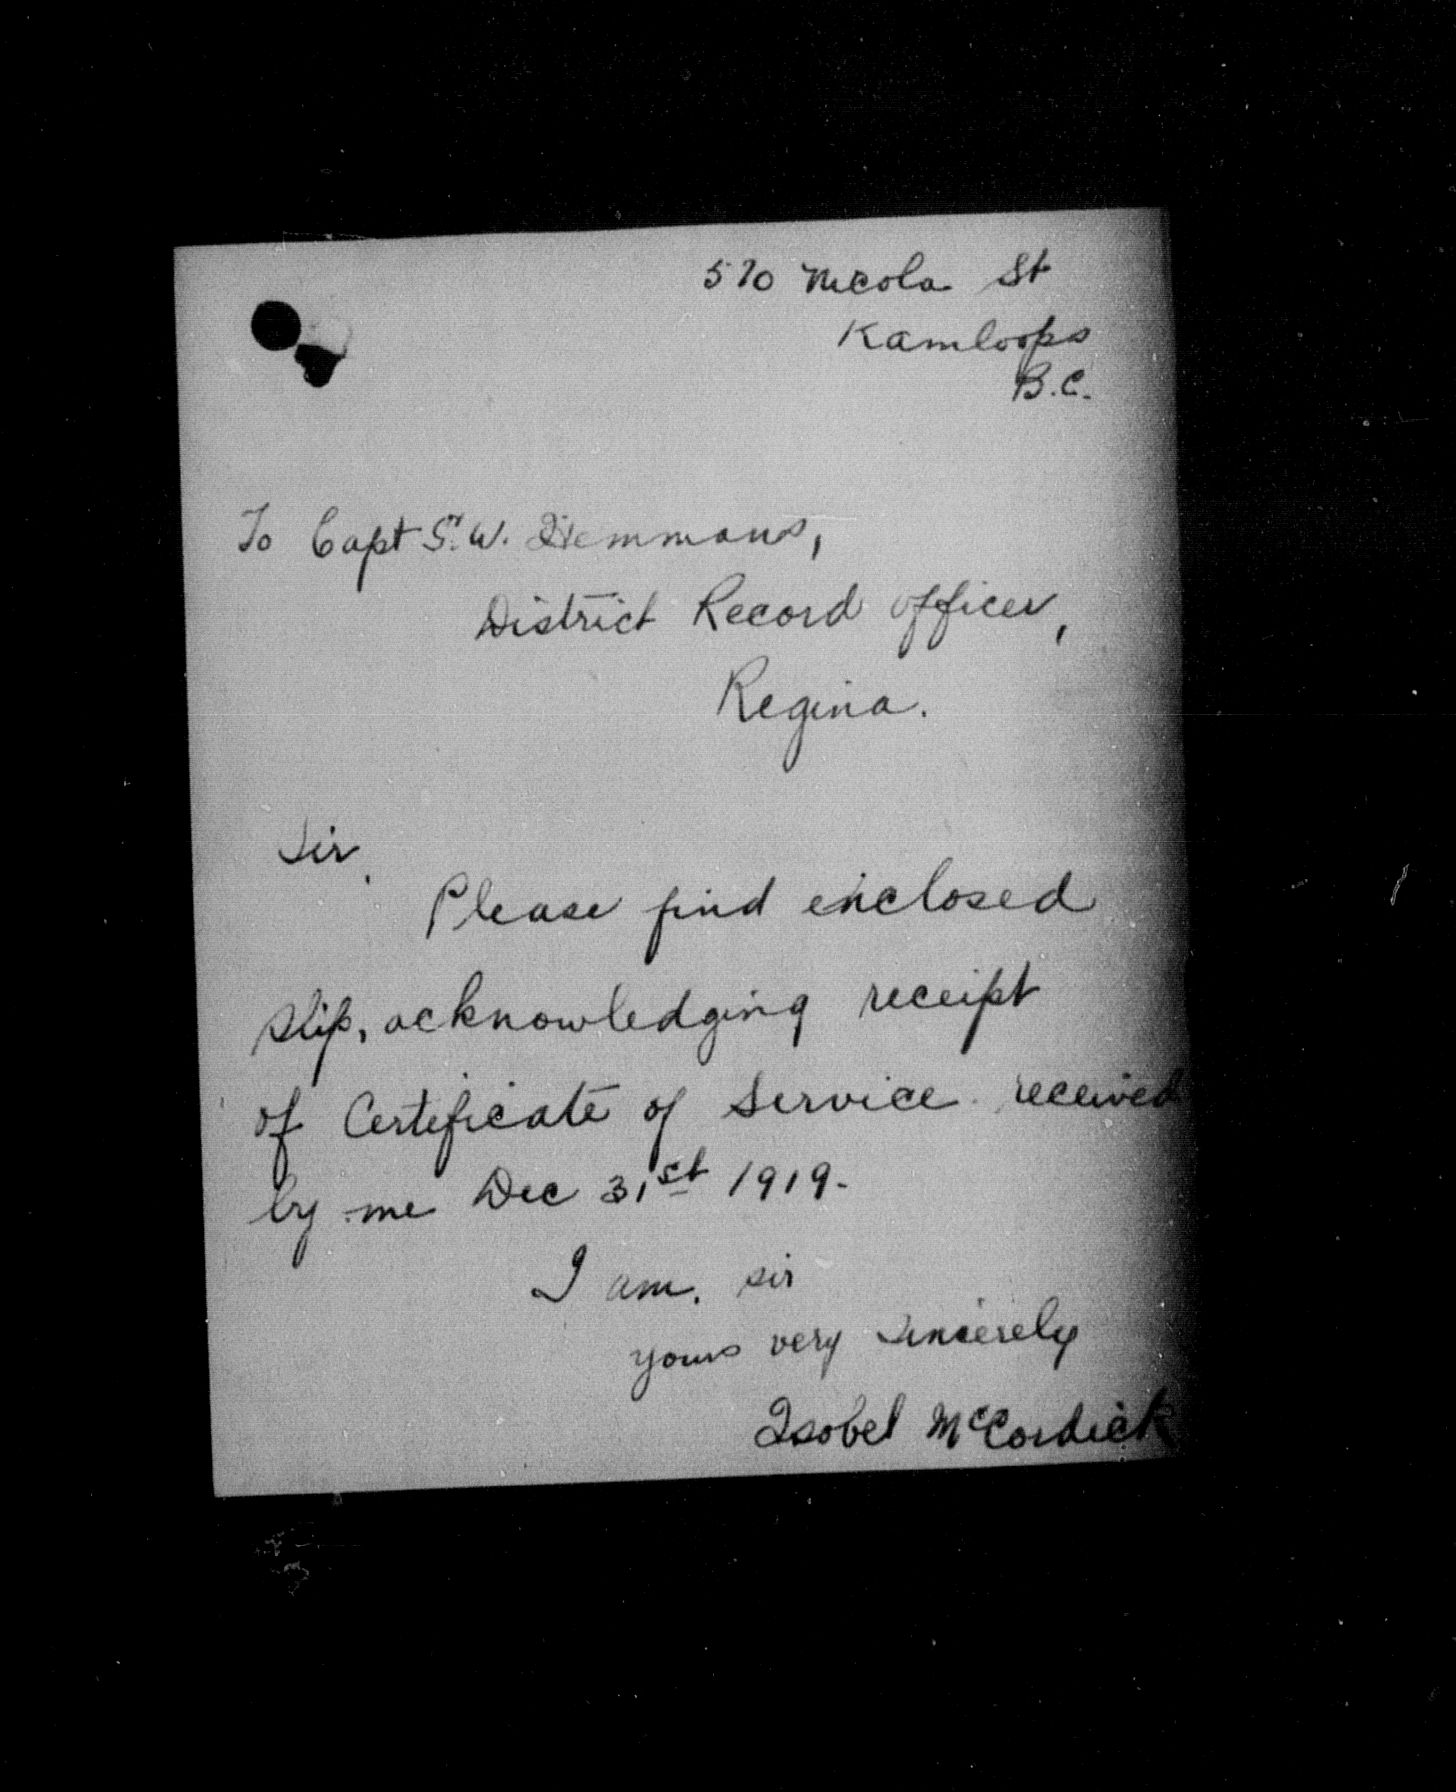 570 Nicola St
Kamloops
B.C.
To Capt S.W. Hemmans,
District Record officer,
Regina.
Sir,
Please find enclosed
slip, acknowledging receipt
of Certificate of Service received
by me Dec 31st 1919.
I am. sir
yours very sincerely
Isobel McCordick